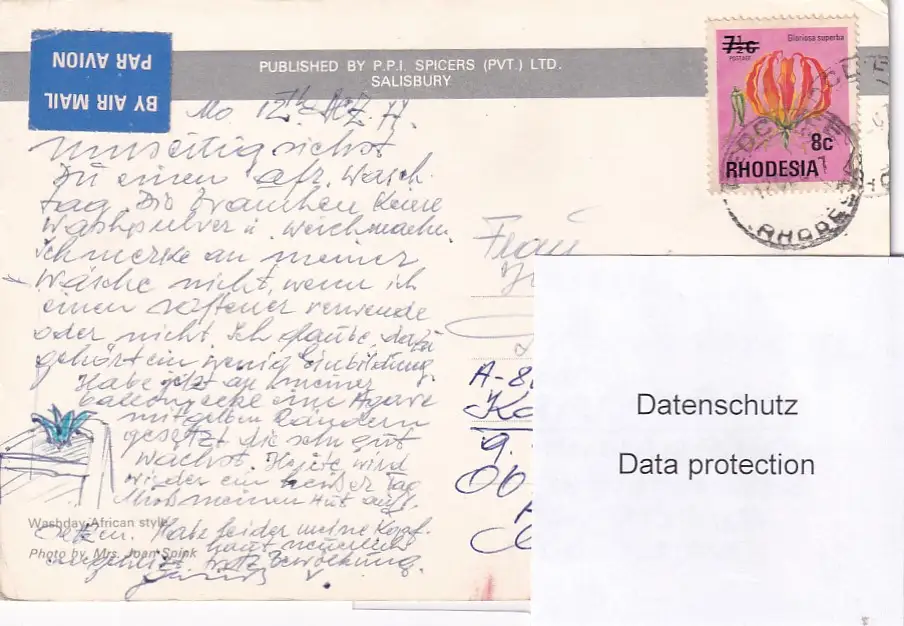 BY AIR MAIL
PAR AVION
PUBLISHED BY P.P.I. SPICERS (PVT.) LTD.
SALISBURY
7½c
POSTAGE
Gloriosa superba
8c
RHODESIA
Mo 12th 77.
umseitig siehst
Du einen afr. Wasch-
tag. Die brauchen keine
Waschpulver u. Weichmacher.
Ich merke an meiner
Wäsche nicht, wenn ich
einen verwende
oder nicht. Ich glaube, dazu
gehört ein wenig Einbildung.
Habe jetzt an meiner
eine Agave
mit gelben Rändern
gesetzt die sehr gut
wächst. Heute wird
wieder ein heißer Tag
Muß meinen Hut auf-
setzen. Habe leider meine Kopf-
haut neuerlich
trotz Bewölkung.
Washday African style
Photo by Mrs. Joan Spink
Frau
A-8
Datenschutz
Data protection